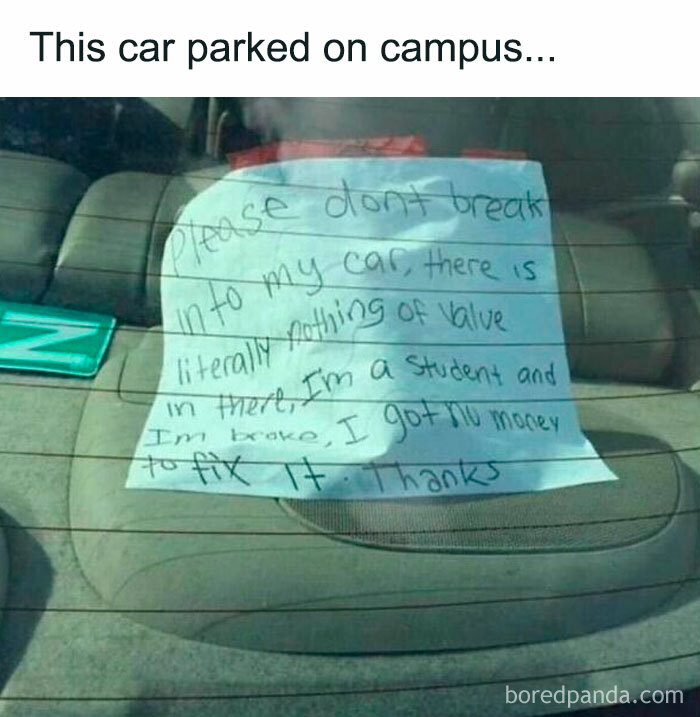 This car parked on campus...
Please dont break
into my car, there is
literally nothing of value
in there, I'm a student and
Im broke, I got no money
to fix it. Thanks
N
boredpanda.com